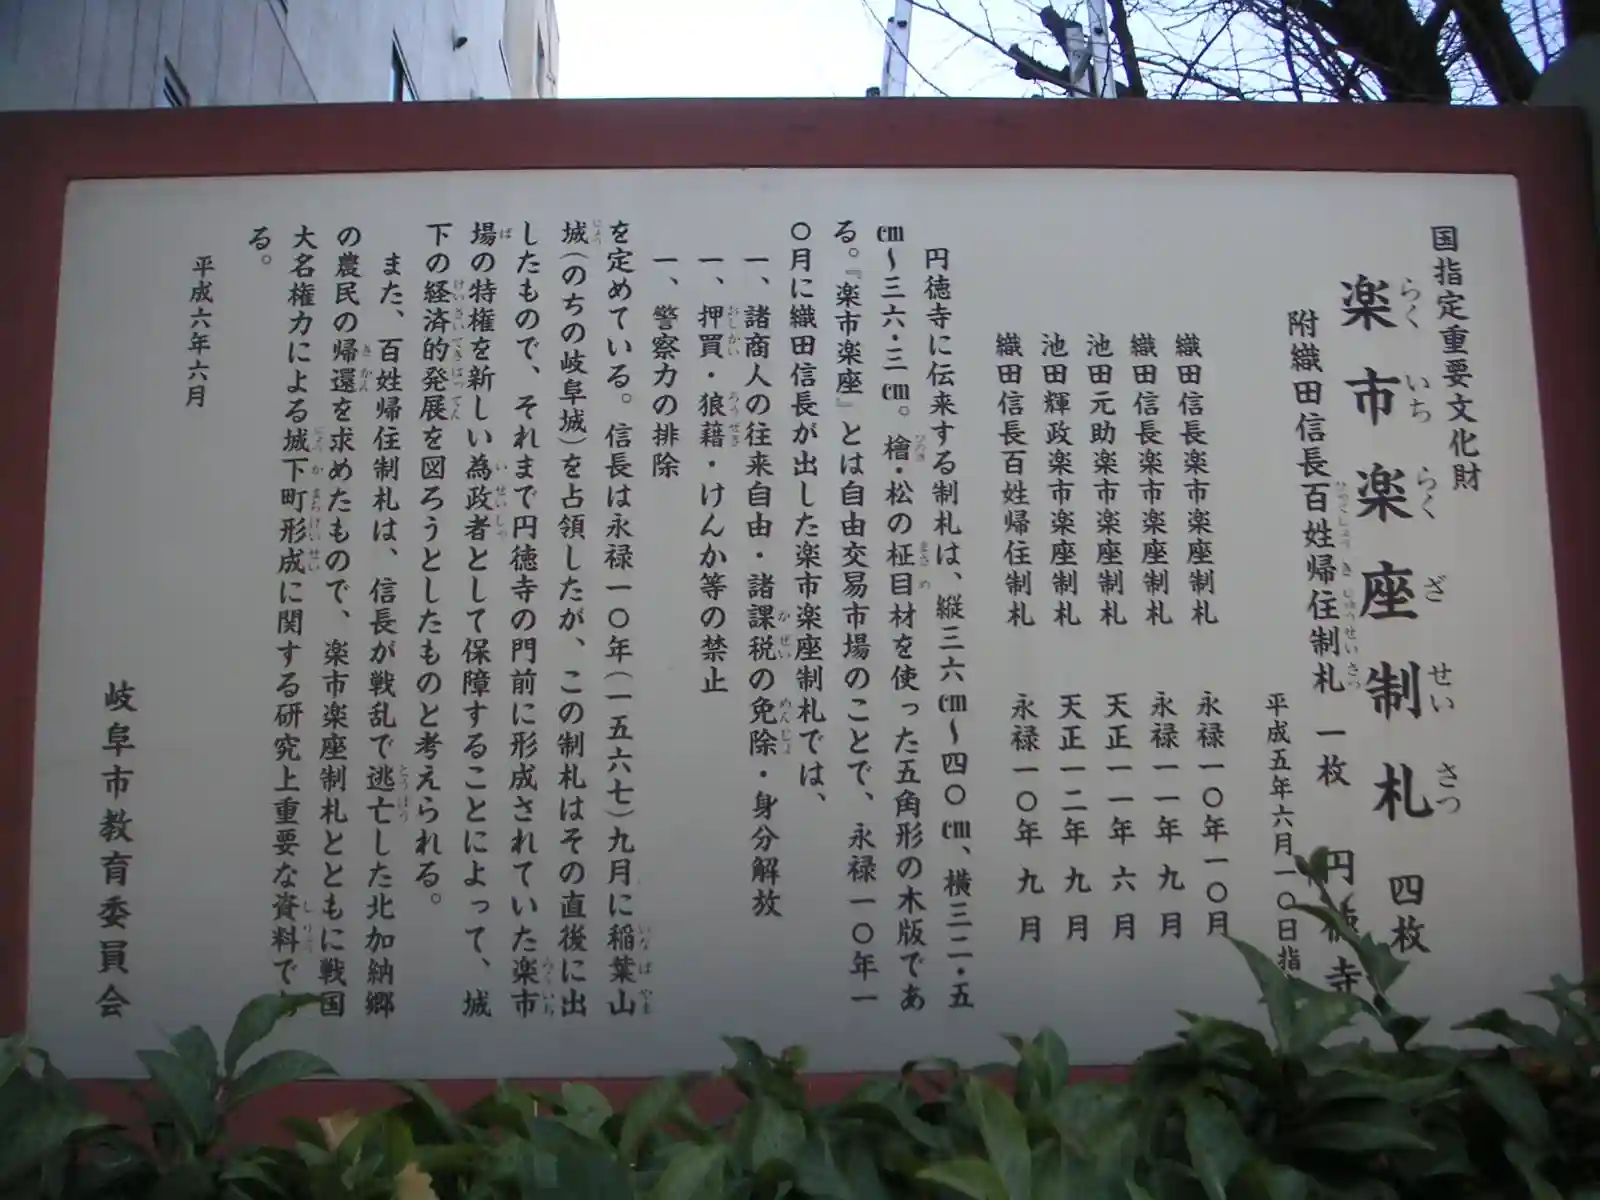 国指定重要文化財
楽市楽座制札 四枚
附織田信長百姓帰住制札 一枚 円徳寺
平成五年六月一〇日指
織田信長楽市楽座制札 永禄一〇年一〇月
織田信長楽市楽座制札 永禄一一年九月
池田元助楽市楽座制札 天正一一年六月
池田輝政楽市楽座制札 天正一二年九月
織田信長百姓帰住制札 永禄一〇年九月
円徳寺に伝来する制札は、縦三六㎝〜四〇㎝、横三二・五
㎝〜三六・三㎝。檜・松の柾目材を使った五角形の木版であ
る。『楽市楽座』とは自由交易市場のことで、永禄一〇年一
〇月に織田信長が出した楽市楽座制札では、
一、諸商人の往来自由・諸課税の免除・身分解放
一、押買・狼藉・けんか等の禁止
一、警察力の排除
を定めている。信長は永禄一〇年(一五六七)九月に稲葉山
城(のちの岐阜城)を占領したが、この制札はその直後に出
したもので、それまで円徳寺の門前に形成されていた楽市
場の特権を新しい為政者として保障することによって、城
下の経済的発展を図ろうとしたものと考えられる。
また、百姓帰住制札は、信長が戦乱で逃亡した北加納郷
の農民の帰還を求めたもので、楽市楽座制札とともに戦国
大名権力による城下町形成に関する研究上重要な資料であ
る。
平成六年六月
岐阜市教育委員会